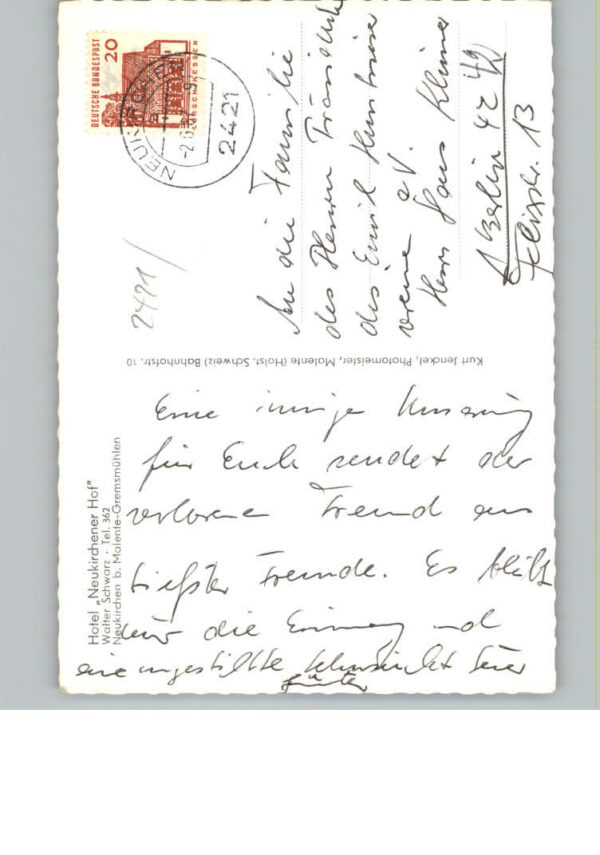 DEUTSCHE BUNDESPOST
20
2421
An die Familie
des Herrn
des Emil
vereins e.V.
Herr Hans Klima
1 Berlin 42
Felixstr. 13
2421/
Kurt Jenckel, Photomeister, Malente (Holst. Schweiz) Bahnhofstr. 10
Hotel „Neukirchener Hof"
Walter Schwarz · Tel. 362
Neukirchen b. Malente-Gremsmühlen
Eine innige Umarmung
für Euch sendet der
verlorene Freund aus
tiefster Fremde. Es bleibt
nur die Erinnerung und
eine ungestillte Sehnsucht Euer
Günter